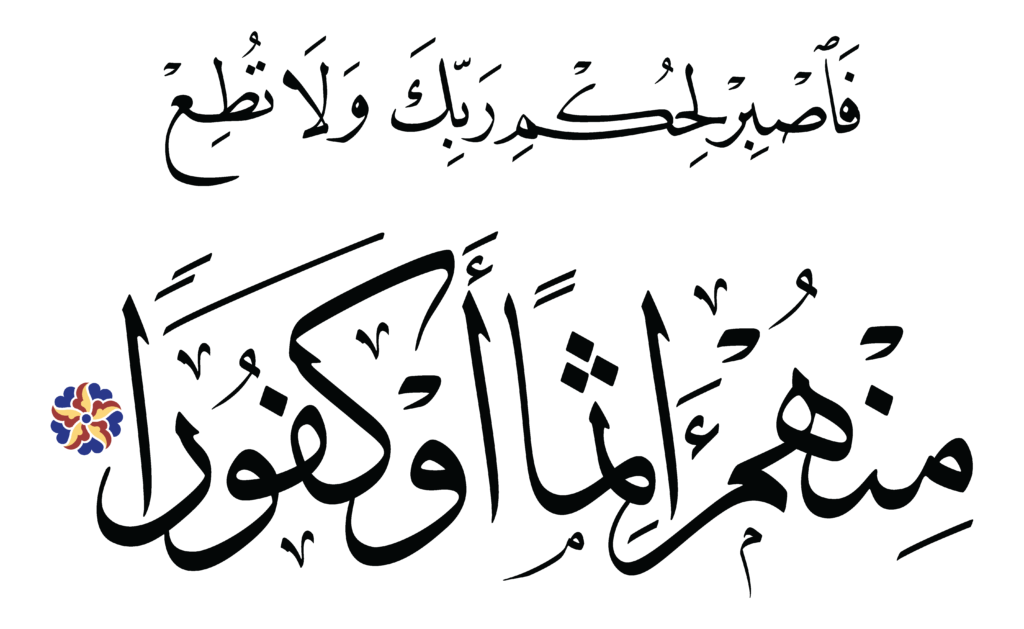 فَٱصْبِرْ لِحُكْمِ رَبِّكَ وَلَا تُطِعْ
مِنْهُمْ ءَاثِمًا أَوْ كَفُورًا